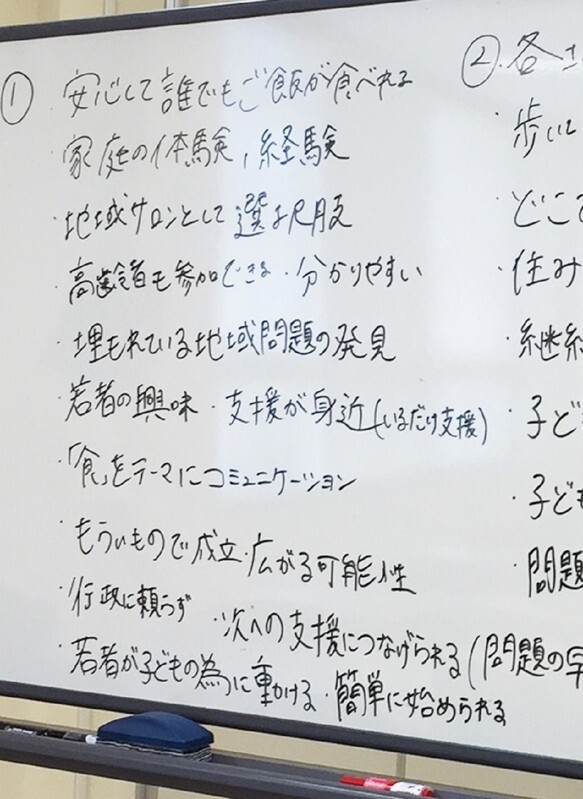 ① 安心して誰でもご飯が食べれる
・家庭の体験,経験
・地域サロンとして選択肢
・高齢者も参加できる・分かりやすい
・埋もれている地域問題の発見
・若者の興味・支援が身近(いるだけ支援)
・「食」をテーマにコミュニケーション
・もらいもので成立・広がる可能性
・行政に頼らず
・次への支援につなげられる(問題の早
・若者が子どもの為に動ける・簡単に始められる
② 各
歩いて
どこで
・住み
・継続
・子ども
・子ども
問題